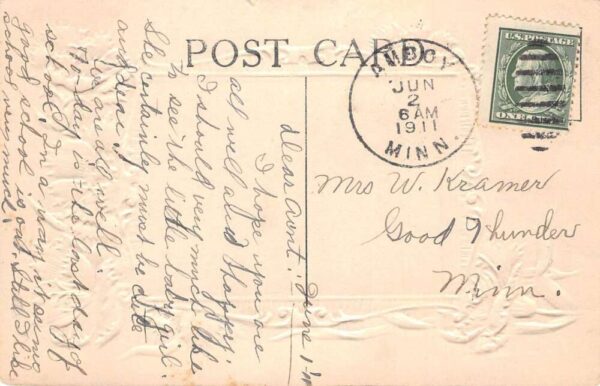 POST CARD
AMBOY
JUN
2
6 AM
1911
MINN.
U.S. POSTAGE
Mrs W. Kramer
Good Thunder
Minn.
June 1-11
Dear Aunt:
I hope you are
all well and happy.
I should very much like
to see the little baby girl.
She certainly must be cute
and dear.
We are all well.
To-day is the last day of
school. In a way it seems
good school is out. Still I like
school very much.